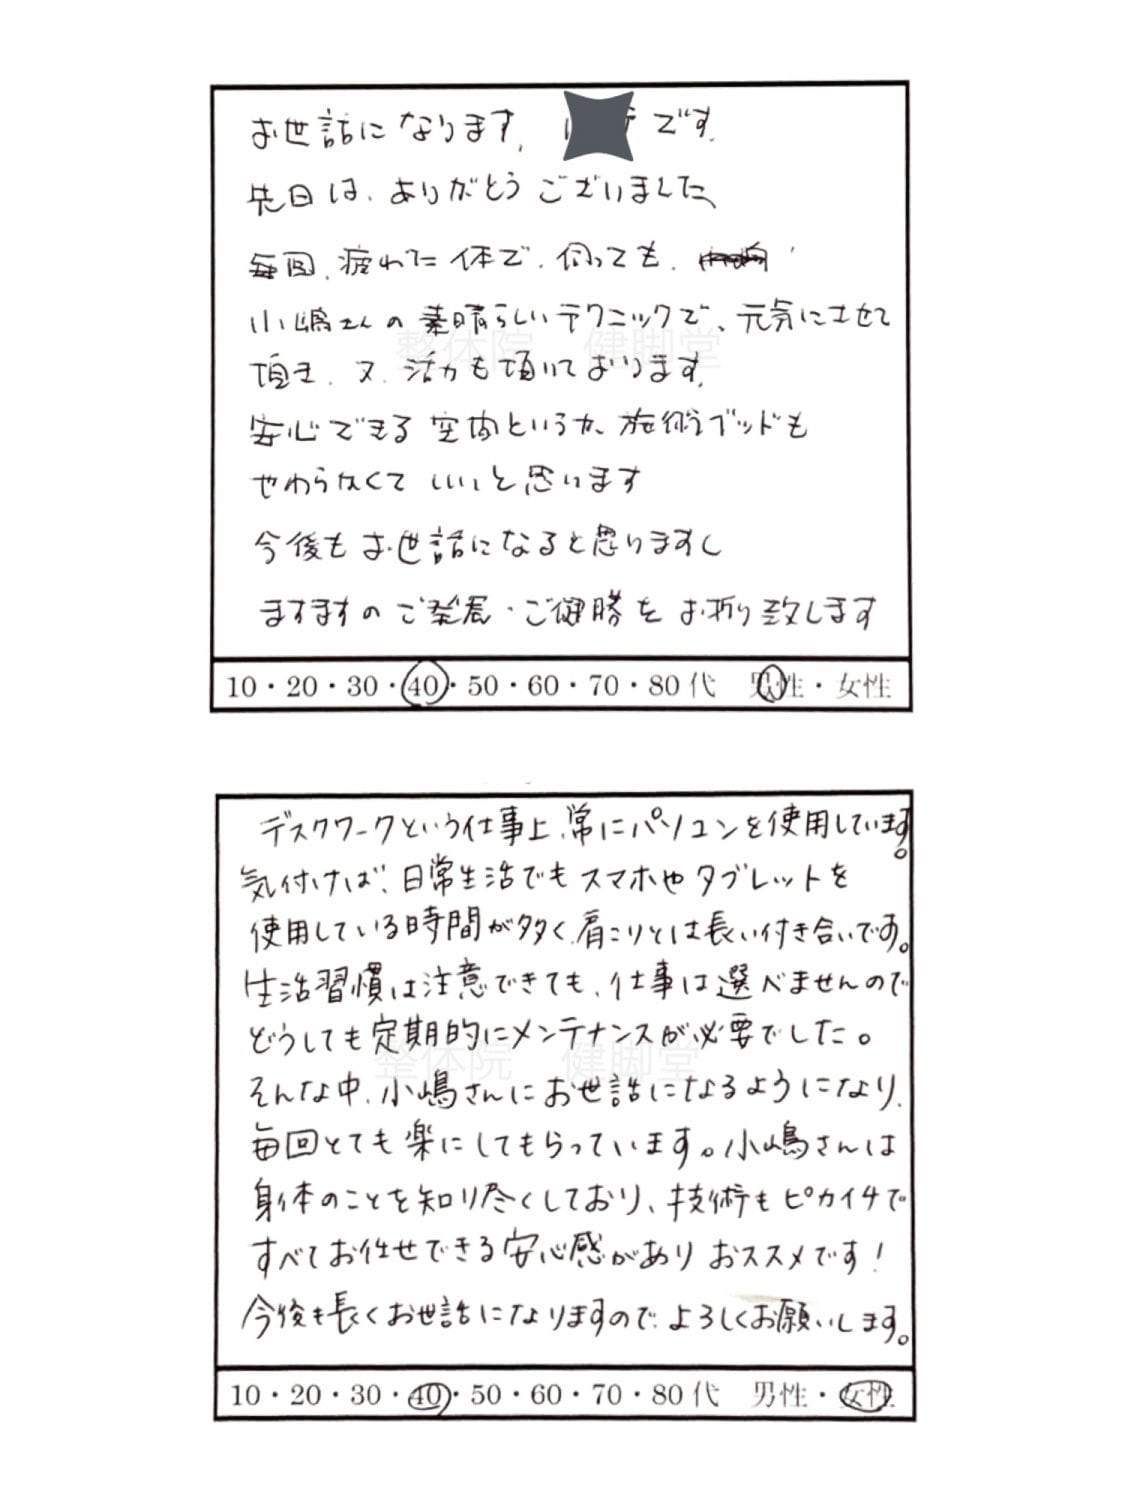 お世話になります, です.
先日は、ありがとうございました、
毎回、疲れた体で、伺っても、
小嶋さんの素晴らしいテクニックで、元気にさせて
頂き、又、活力も頂いております。
安心できる空間というか、施術ブッドも
やわらなくていい、と思います
今後もお世話になると思いますし
ますますのご発展・ご健勝をお祈り致します
10・20・30・40・50・60・70・80代 男性・女性
デスクワークという仕事上、常にパソコンを使用しています。
気付けば、日常生活でもスマホやタブレットを
使用している時間が多く、肩こりとは長い付き合いです。
生活習慣は注意できても、仕事は選べませんので
どうしても定期的にメンテナンスが必要でした。
そんな中、小嶋さんにお世話になるようになり、
毎回とても楽にしてもらっています。小嶋さんは
身体のことを知り尽くしており、技術もピカイチで
すべてお任せできる安心感があり おススメです!
今後も長くお世話になりますので、よろしくお願いします。
10・20・30・40・50・60・70・80代 男性・女性
整体院 健脚堂
整体院 健脚堂